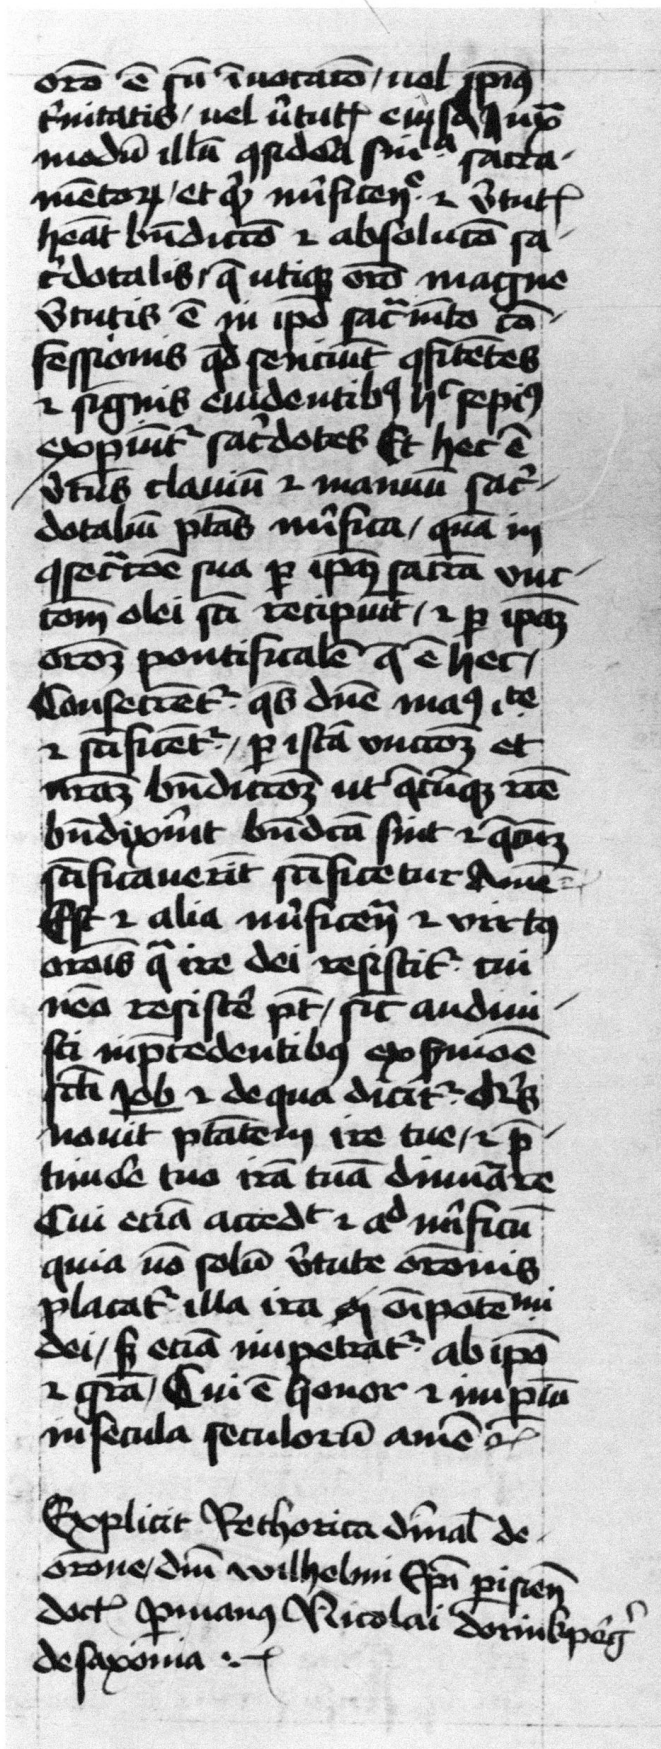 orō ē sū īuocatō / uel ipiꝰ
t'nitatis / uel v̄tutꝭ eiusdē Iuxᵃ
modū illū ꝯsidera siml'a sacra-
mētoꝝ / et ꝙ m̄ificenᵉ ⁊ v̄tutꝭ
heāt bn̄dictō ⁊ absolutō sa-
c'dotalis / q̄ utiqꝫ orō magne
v̄tutis ē in ipō sac̄mēto cō-
fessionis qd̄ senciūt ꝯfitētes
⁊ signis euidentibꝰ hᶜ sepiꝰ
expiūtᵣ sac'dotes Et hec ē
v̄tus clauiū ⁊ manuū sac'-
dotaliū ptās m̄ifica / quā in
ꝯsec̄tōe sua ꝑ ipaꝫ sacrā vnc-
tōm olei sc̄i recipiūt / ⁊ ꝑ ipaꝫ
oroꝫ pontificalē q̄ ē hec /
Consecrēt᷑ qs̄ dn̄e manꝰ iste
⁊ sc̄ificēt᷑ / ꝑ istā vnctōꝫ et
nraꝫ bn̄dictōꝫ ut q̄cūqꝫ rite
bn̄dixīnt bn̄dcā sint ⁊ q̄cūqꝫ
sc̄ificauerīt sc̄ificetur Amē
Est ⁊ alia m̄ificen̄ ⁊ virtꝰ
orōis q̄ ire dei resistit᷑ cui
nēo resistē pt̄ / sic̄ audiui-
sti in p̄cedentibꝰ ex s'mōe
sc̄i Job ⁊ de qua dicit᷑ Qⁱs
nouit ptātem ire tue / ⁊ p̄-
timōe tuo irā tuā dinūare
Cui eciā accedᵗ ⁊ ad m̄ificū
quia nō solū v̄tute orōnis
placat᷑ illa ira oīpotētissimi
dei / sꝫ eciā impetrat᷑ ab ipō
⁊ gr̄a / Cui ē honor ⁊ impiū
in secula seculorū amē ⁊ꝭ
Explicit Rethorica diuinal' de
orōne / dn̄i wilhelmi Ep̄i pisien̄
doctꝭ ꝑ manꝰ Nicolai dorinkperg'
de saxonia